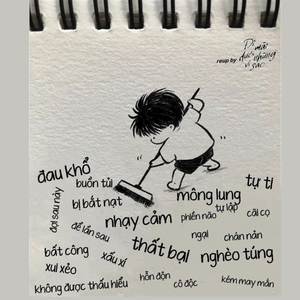 Đi mãi
dưới những
vì sao
reup by
đau khổ
buồn tủi
tự ti
bị bắt nạt
mông lung
đợi sau này
tự lập
nhạy cảm
phiền não
cãi cọ
để lần sau
ngại
chán nản
thất bại
bất công
xấu xí
nghèo túng
xui xẻo
hỗn độn
không được thấu hiểu
cô độc
kém may mắn